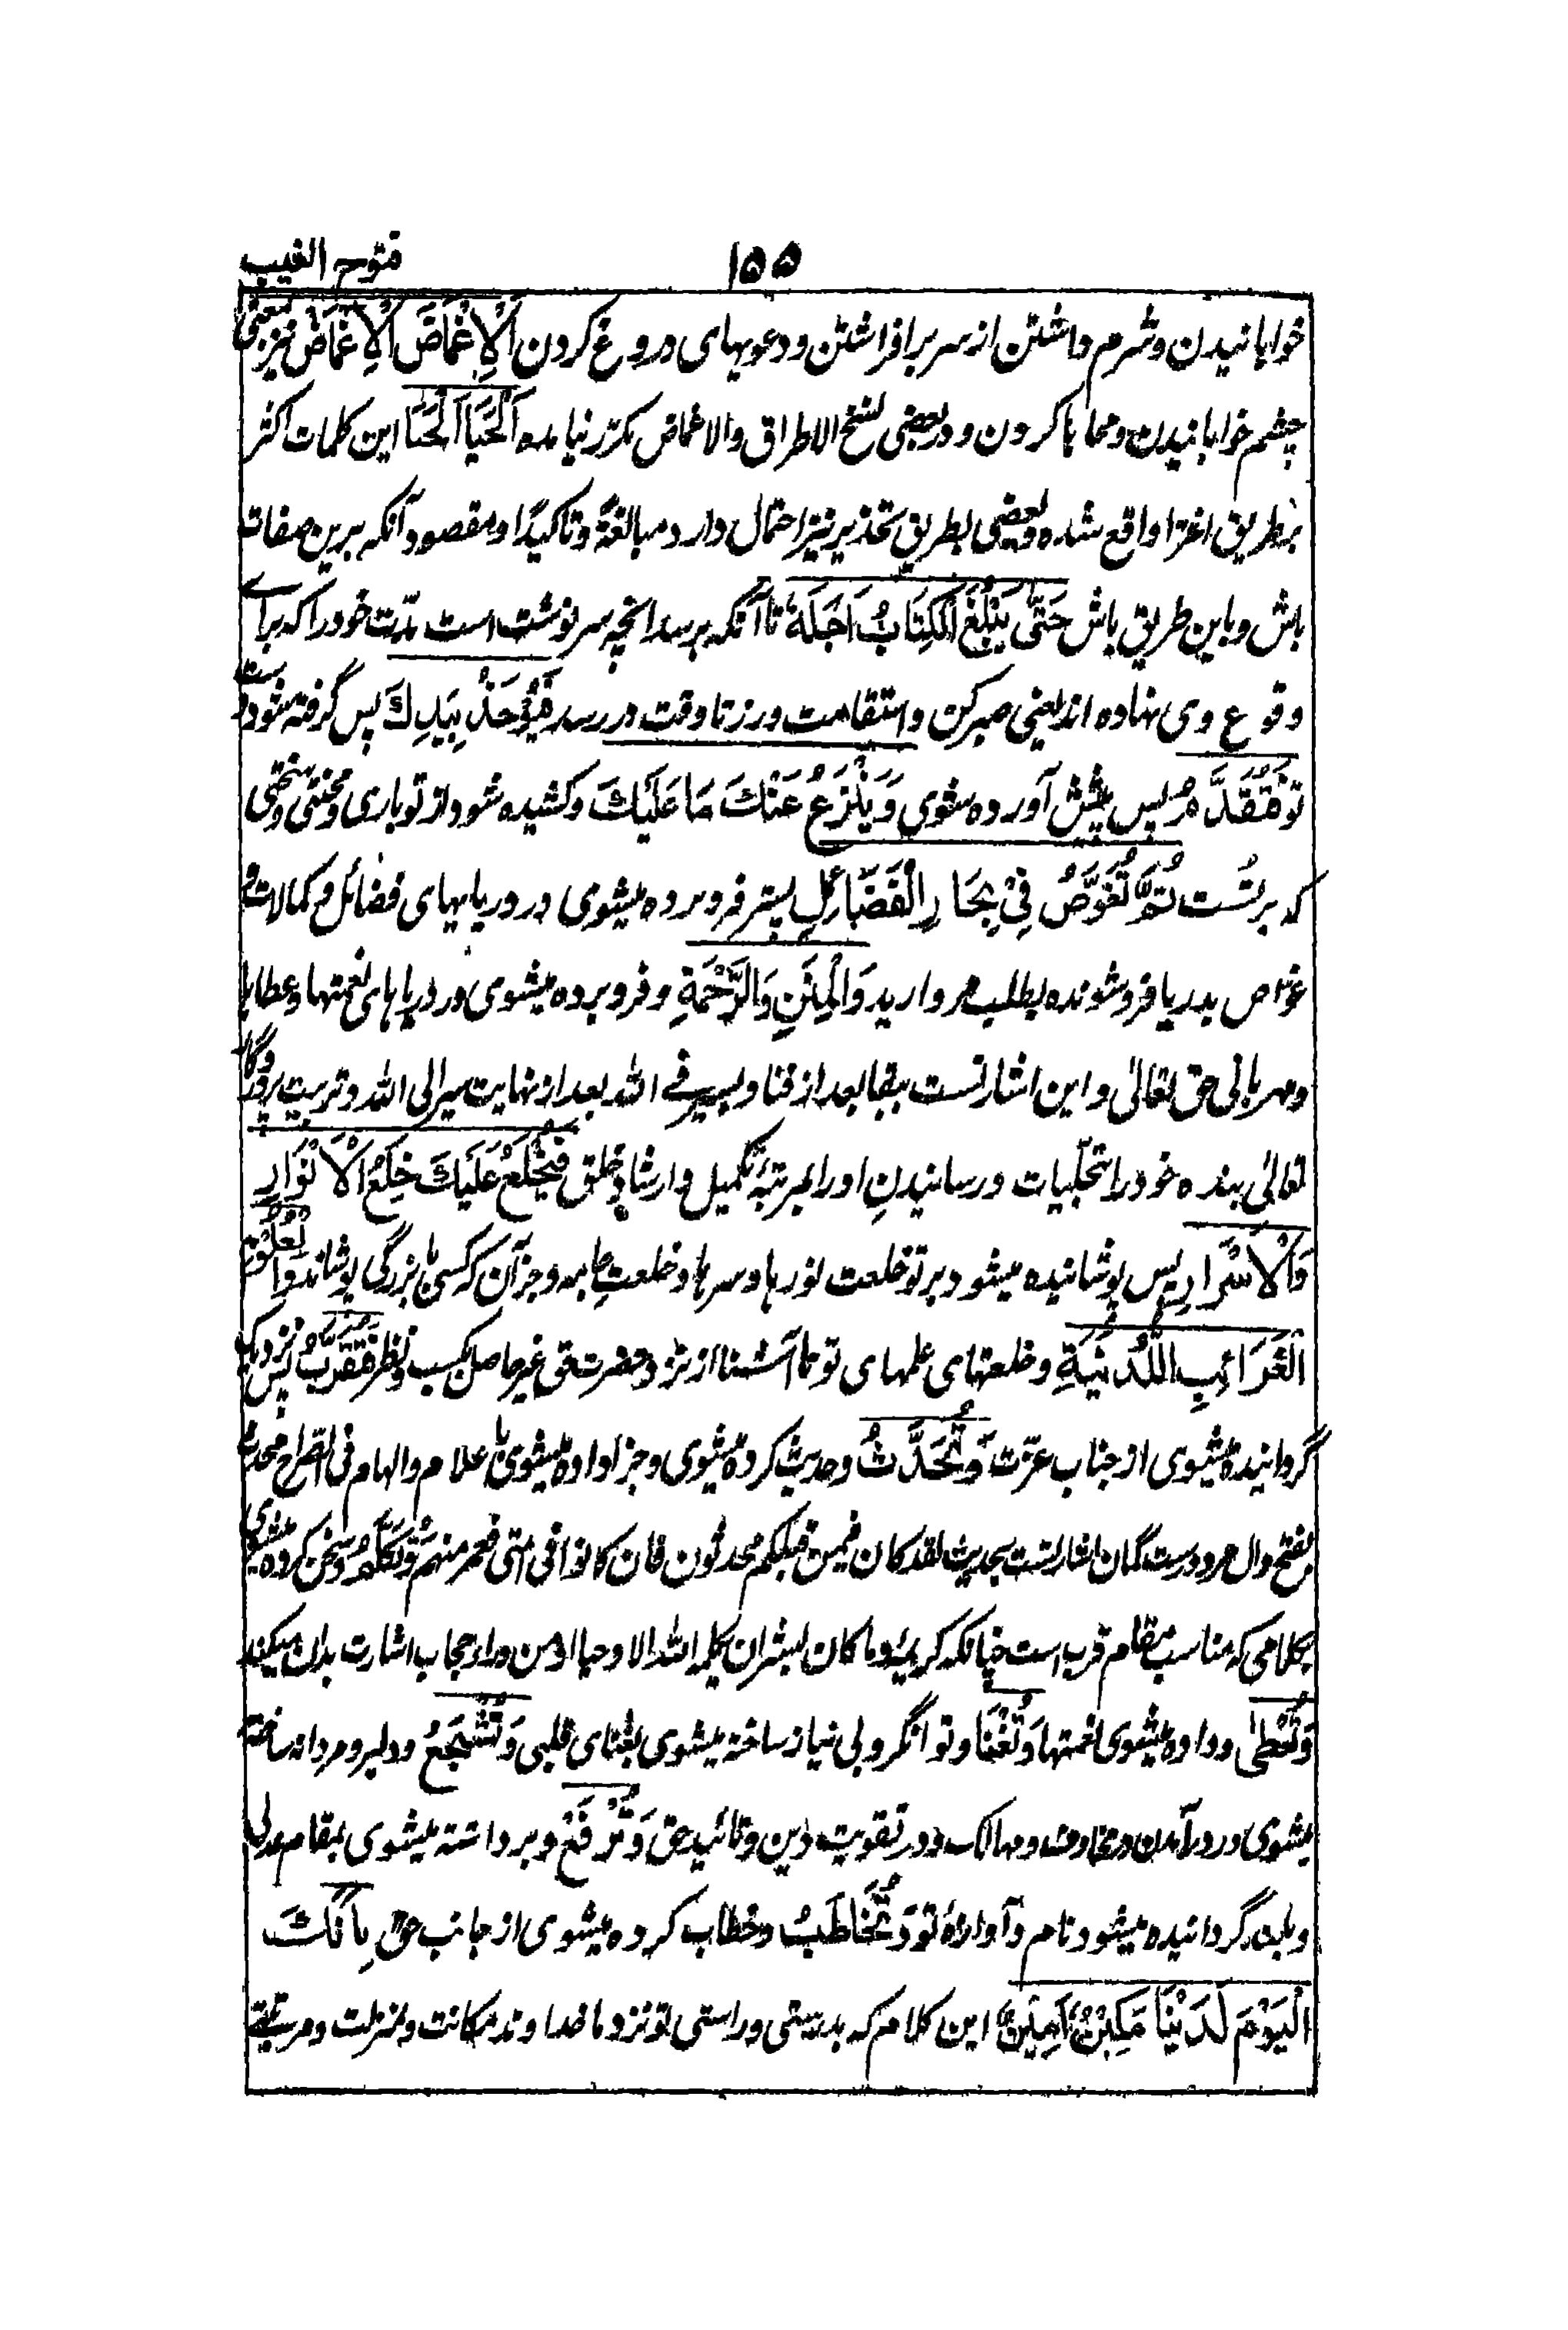 ۱۵۵ فتوح الغیب
خوابانیدن و شرم داشتن از سر برافراشتن و دعویهای دروغ کردن اَلْاِغْمَاضَ اَلْاِغْمَاضَ نیز بمعنی
چشم خوابانیدن و محابا کردن و در بعضی نسخ الاطراق والاغماض مکرر نیامده اَلْحَیَا اَلْحَیَا این کلمات اکثر
بر طریق اغرا واقع شده و بعضی بطریق تحذیر نیز احتمال دارد مبالغةً و تاکیدًا و مقصود آنکه برین صفات
باش و باین طریق باش حَتّٰی یَبْلُغَ الْکِتَابُ اَجَلَهٗ تا آنکه برسد انچه سرنوشت است مدّت خود را که برای
وقوع وی نهاده اند یعنی صبر کن و استقامت ورز تا وقت در رسد فَیُؤْخَذُ بِیَدِكَ پس گرفته شود دست
تو فَتُقَدَّمُ پس پیش آورده شوی وَیُنْزَعُ عَنْكَ مَا عَلَیْكَ و کشیده شود از تو باری و محنتی و سختی
که بر تست ثُمَّ تُغَوَّصُ فِیْ بِحَارِ الْفَضَائِلِ پستر فرو برده میشوی در دریاهای فضائل و کمالات و
غواص بدریا فرو شونده بطلب مروارید وَالْمِنَنِ وَالرَّحْمَةِ و فرو برده میشوی در دریاهای نعمتها و عطایا
و مهربانی حق تعالیٰ و این اشارتست ببقا بعد از فنا و بسیر فے الله بعد از نهایت سیر الی الله و تربیت پروردگار
تعالیٰ بنده خود را بتجلّیات و رسانیدنِ او را بمرتبۀ تکمیل و ارشاد خلق فَیُخْلَعُ عَلَیْكَ خِلَعُ الْاَنْوَارِ
وَالْاَسْرَارِ پس پوشانیده میشود بر تو خلعت نورها و سرها و خلعتِ جامه و جز آن که کسی را بزرگی پوشاند وَالْعُلُوْمِ
الْغَرَائِبِ اللَّدُنِّیَّةِ و خلعتهای علمهای تو نا آشنا از نزد حضرت حق غیر حاصل بکسب و نظر فَتُقَرَّبُ پس نزدیک
گردانیده میشوی از جناب عزّت وَتُحَدَّثُ و حدیث کرده میشوی و خبر داده میشوی با علام و الهام فی الصراح محدث
بفتح دال مرد درست گمان اشارتست بحدیث لقد کان فیمن قبلکم محدثون فان کانوا فی امتی فعمر منهم وَتُکَلَّمُ و سخن کرده میشوی
بکلامی که مناسب مقام قرب است چنانکه کریمۀ وما کان لبشر ان یکلمه الله الا وحیا او من وراء حجاب اشارت بدان میکند
وَتُعْطٰی و داده میشوی نعمتها وَتُغْنَا و توانگر و بی نیاز ساخته میشوی بغنای قلبی وَتُشَجَّعُ و دلیر و مردانه ساخته
میشوی در درآمدن در مخاوف و مهالک و در تقویت دین و تائید حق وَتُرْفَعُ و برداشته میشوی بمقام عالی
و بلند گردانیده میشود نام و آوازۀ تو وَتُخَاطَبُ و خطاب کرده میشوی از جانب حق بِاَنَّكَ
الْیَوْمَ لَدَیْنَا مَکِیْنٌ اَمِیْنٌ این کلام که بدرستی و راستی تو نزد ما خداوند مکانت و منزلت و مرتبتی